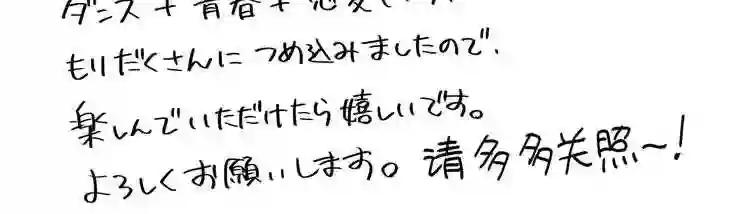 ダンス+青春+恋愛
もりだくさんに つめ込みましたので、
楽しんでいただけたら嬉しいです。
よろしくお願いします。请多多关照~!